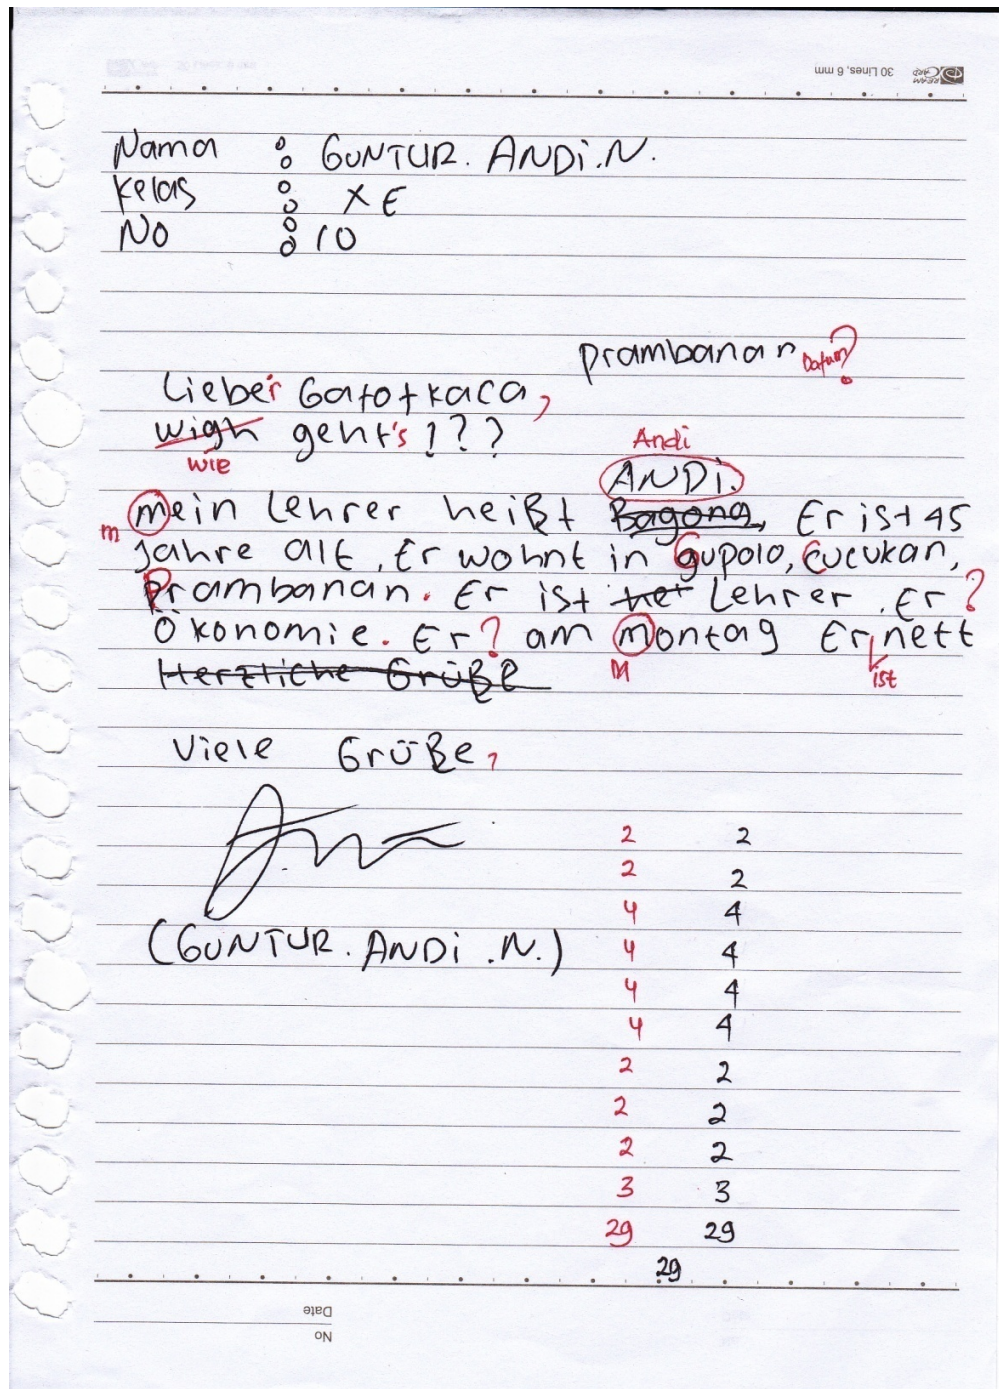 30 Lines, 6 mm DREAM CARD
Nama : GUNTUR. ANDi.N.
Kelas : X E
No : 10
prambanan Datum?
Lieber Gatotkaca,
wigh geht's ! ? ?
wie
Andi
ANDi.
mein Lehrer heißt Bagong, Er ist 45
m
Jahre alt. Er wohnt in Gupolo, Cucukan,
Prambanan. Er ist het Lehrer. Er ?
Ökonomie. Er ? am montag Er nett
M ist
Herzliche Grüße
Viele Grüße,
(GUNTUR. ANDi .N.)
2 2
2 2
4 4
4 4
4 4
4 4
2 2
2 2
2 2
3 3
29 29
29
Date
No